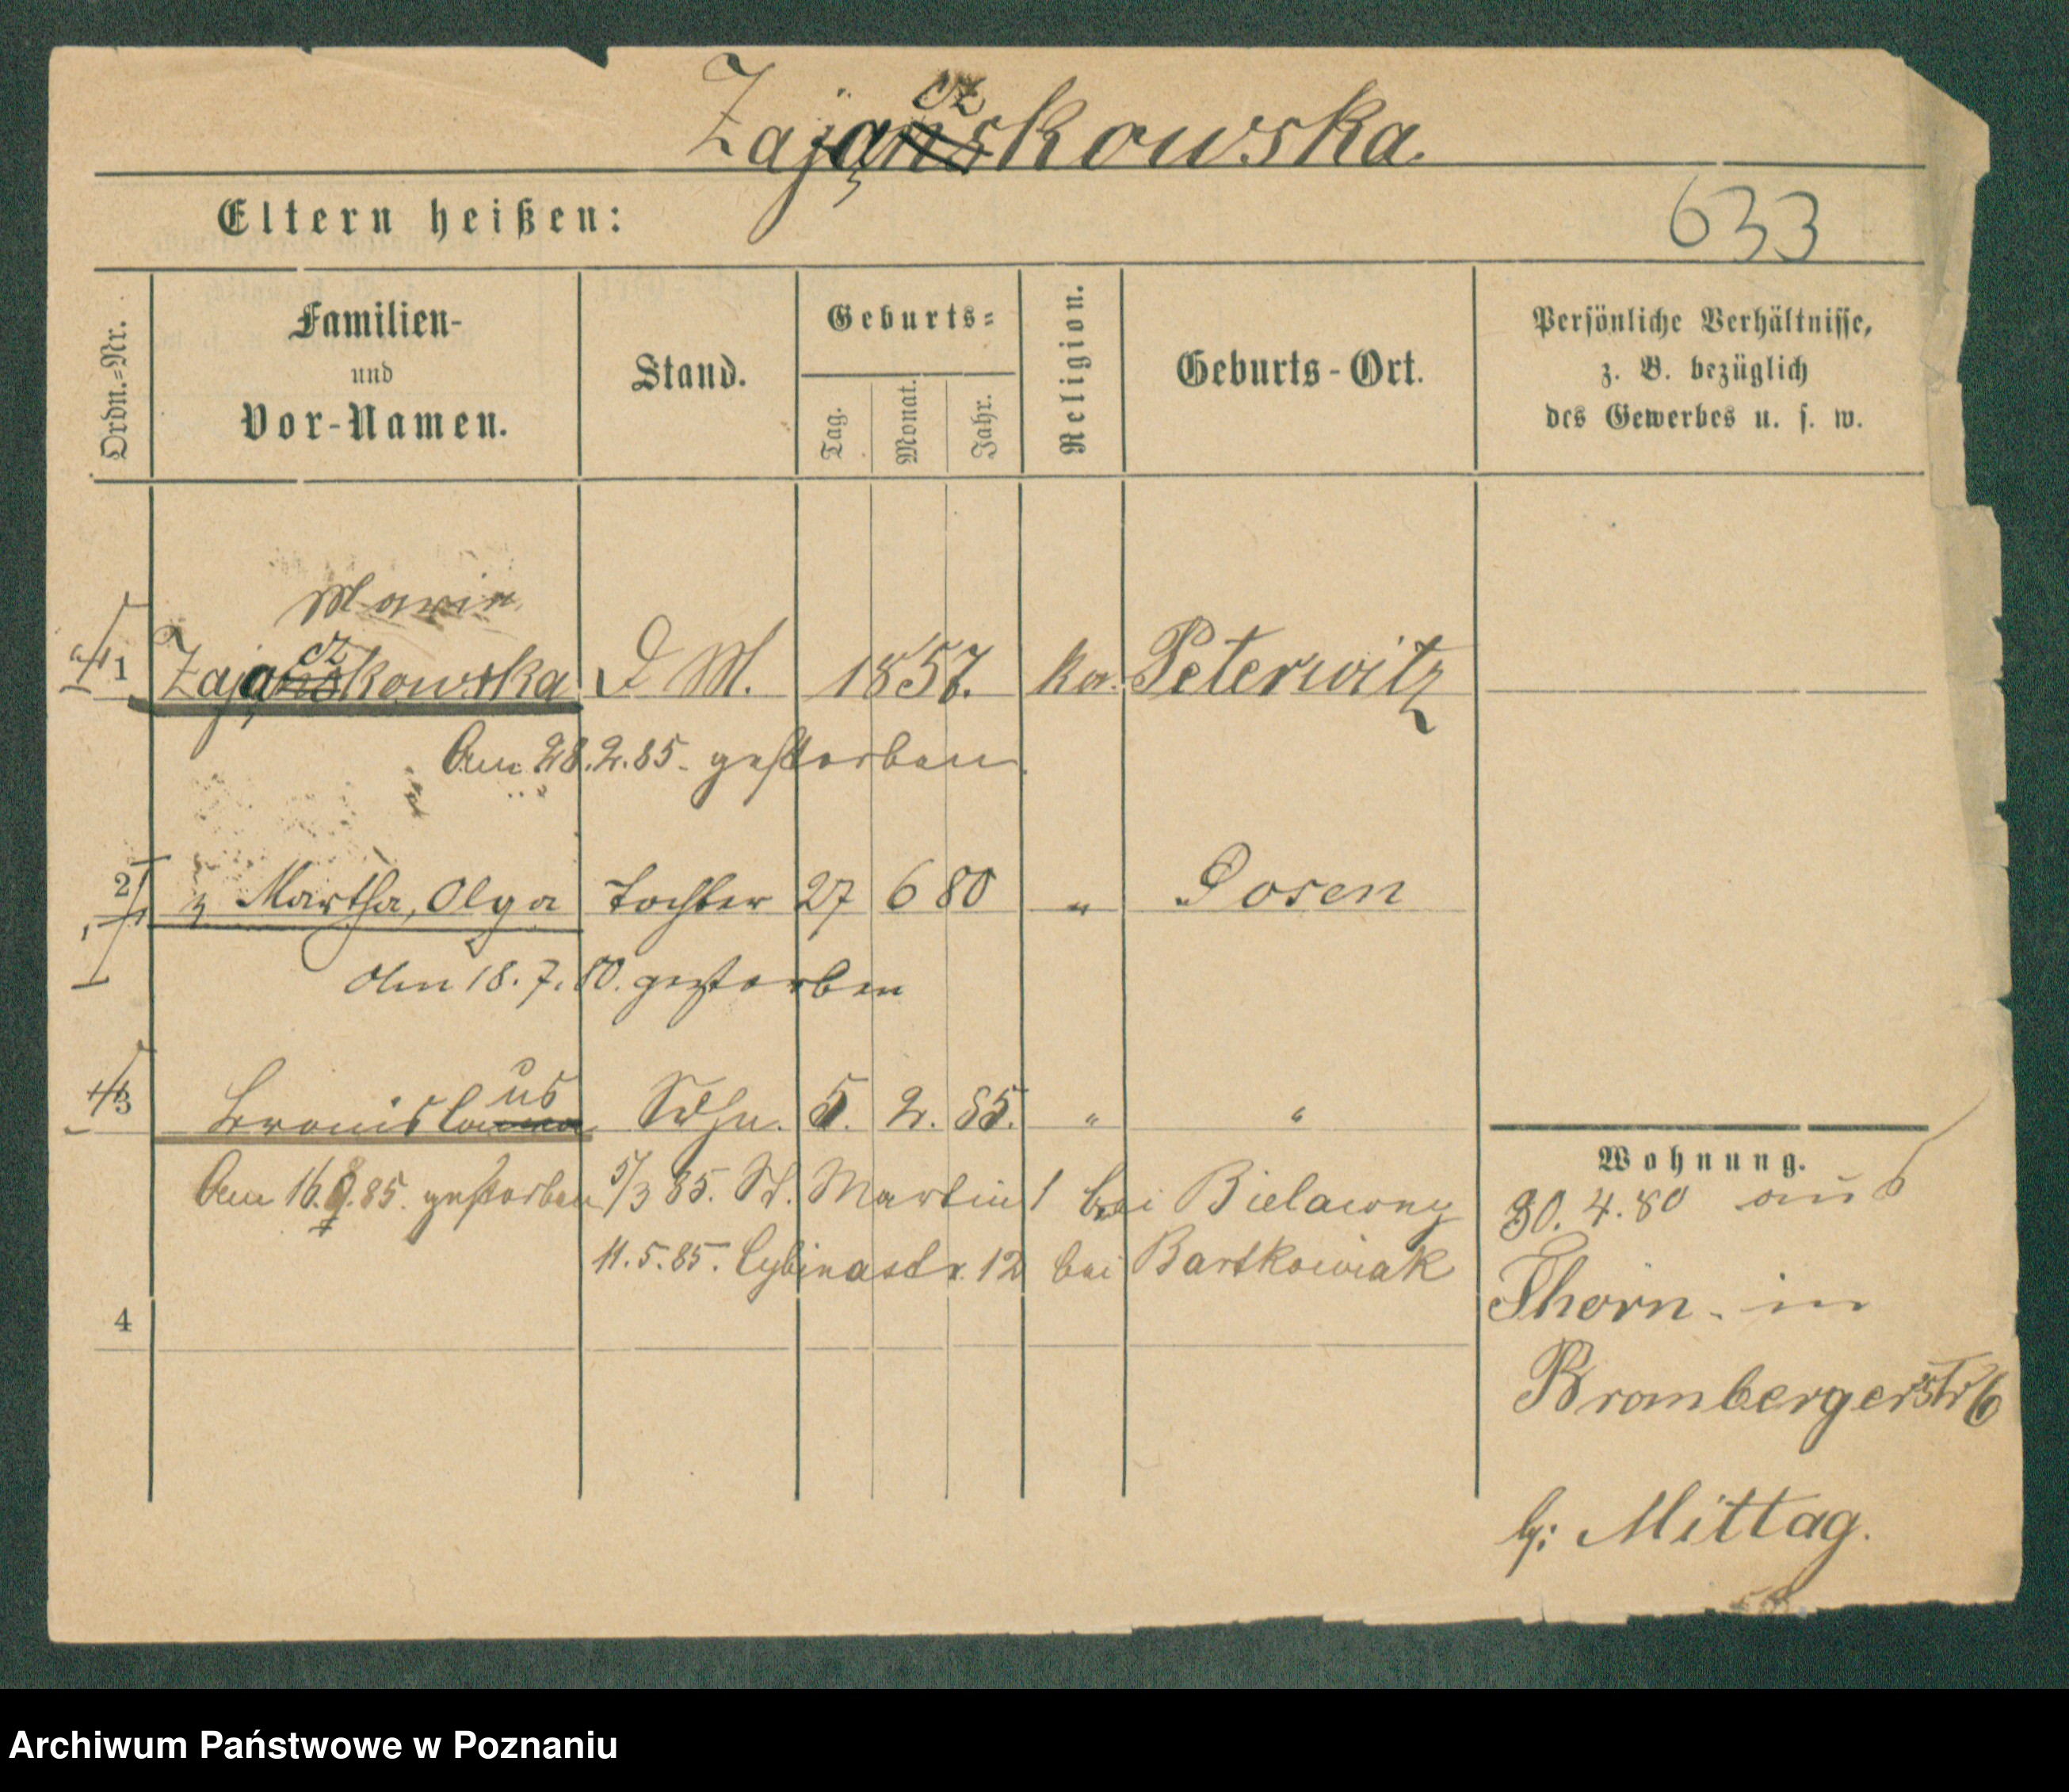 Zająčzkowska.
Eltern heißen:
633
Ordn.=Nr.
Familien-
und
Vor-Namen.
Stand.
Geburts=
Tag.
Monat.
Jahr.
Religion.
Geburts-Ort.
Persönliche Verhältnisse,
z. B. bezüglich
des Gewerbes u. s. w.
Maria
1 Zajączkowska D M. 1857. ka. Peterwitz
Am 28.2.85. gestorben
2 Martha, Olga Tochter 27 6 80 " Posen
Am 18.7.80. gestorben
3 Bronislaus Sohn. 5. 2. 85. " "
Am 16. .85. gestorben 5/3 85. St. Martin 1 bei Bielawny
11.5.85. Cybinastr. 12 bei Bartkowiak
4
Wohnung.
30.4.80 aus
Thorn. in
Brombergerstr 6
b: Mittag.
Archiwum Państwowe w Poznaniu